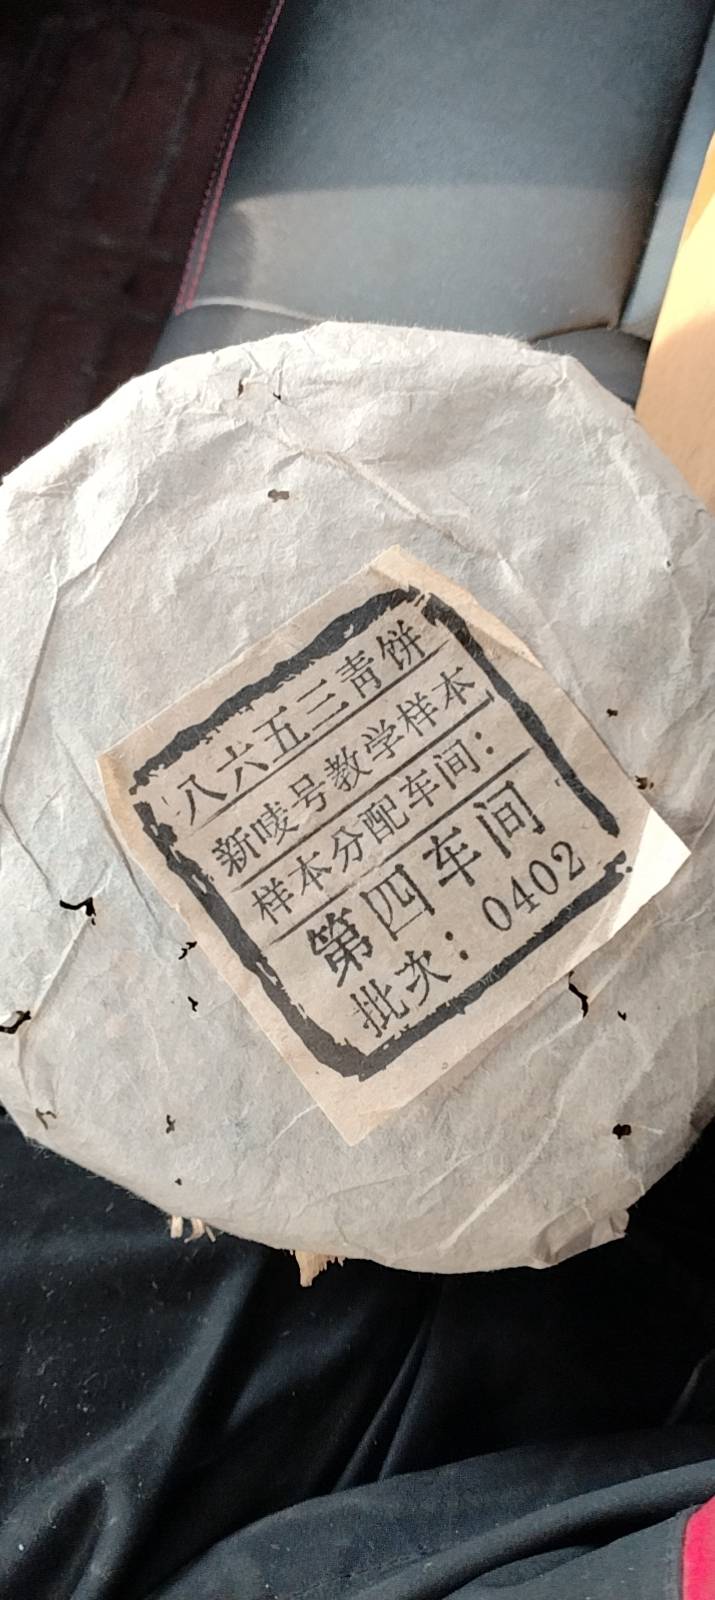 八六五三青饼
新唛号教学样本
样本分配车间：
第四车间
批次：0402